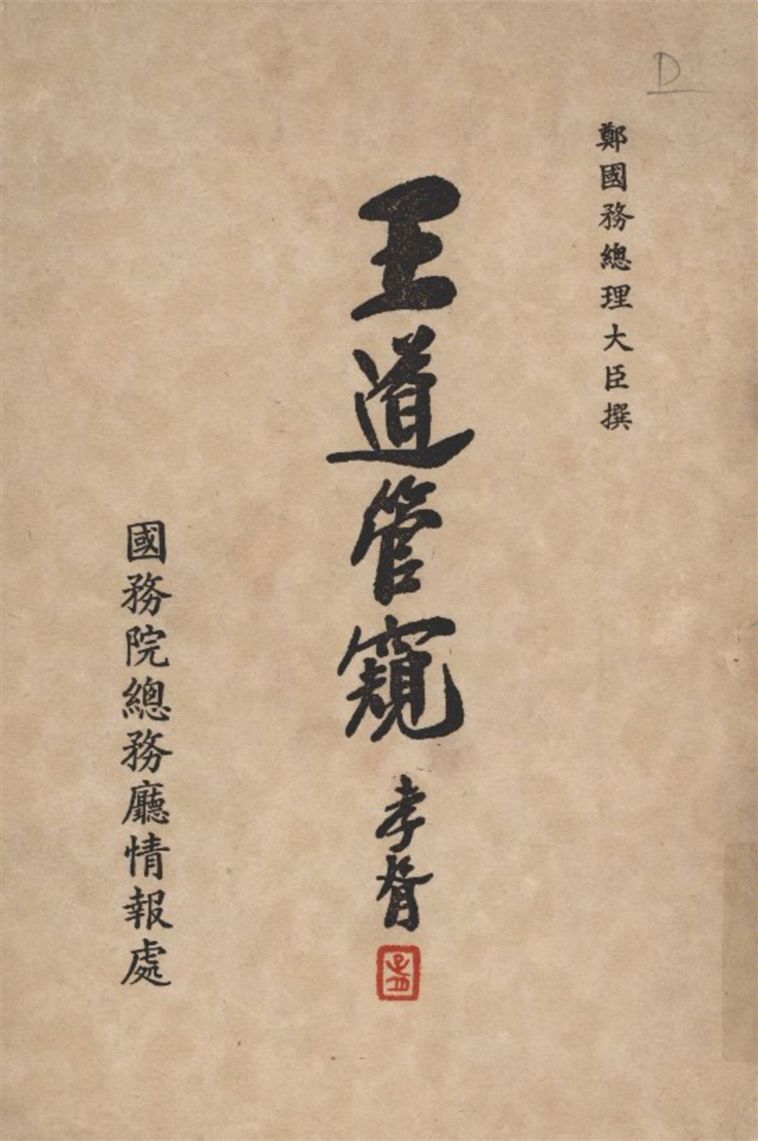 D
鄭國務總理大臣撰
王道管窺
孝胥
國務院總務廳情報處